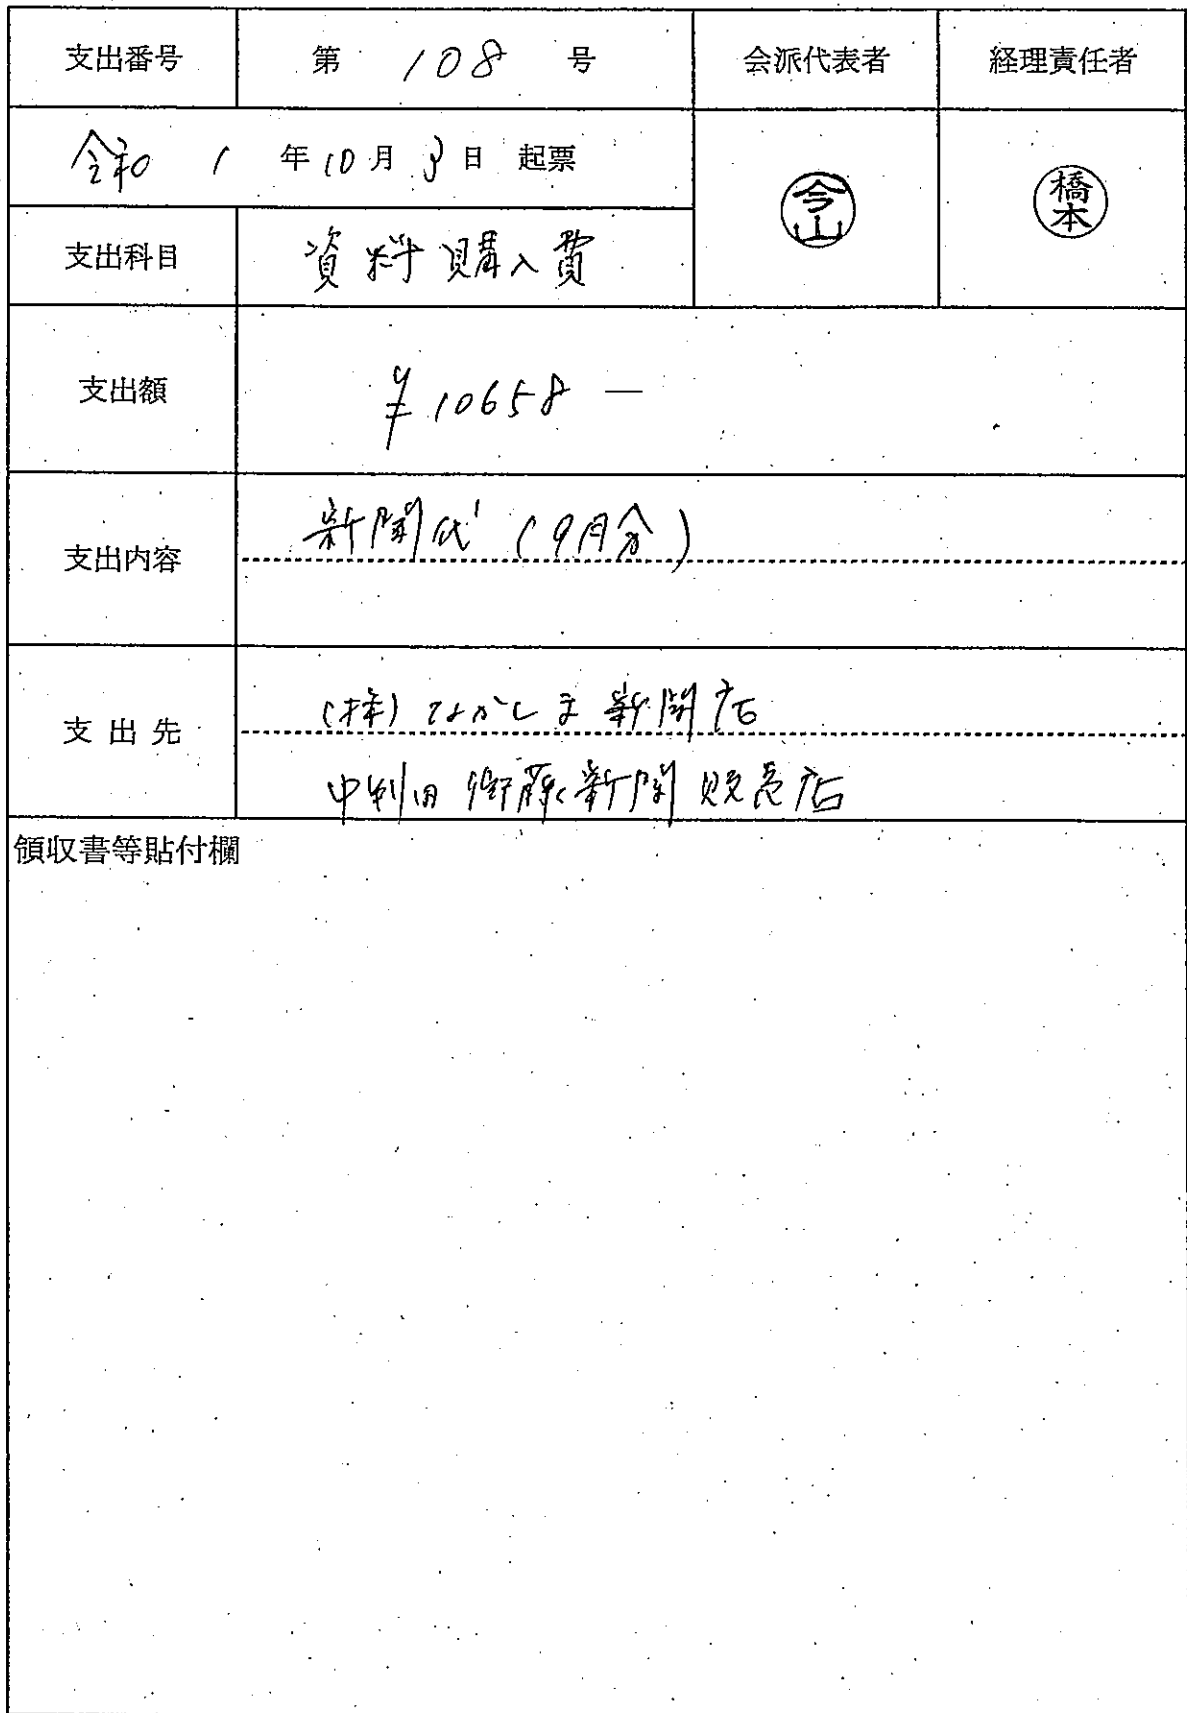 支出番号 第 108 号 会派代表者 経理責任者
令和 1 年 10 月 3 日 起票
今山
橋本
支出科目 資料購入費
支出額 ¥10658 ―
支出内容 新聞代 (9月分)
支出先 (株) ながしま新聞店
中判田 衛藤新聞販売店
領収書等貼付欄